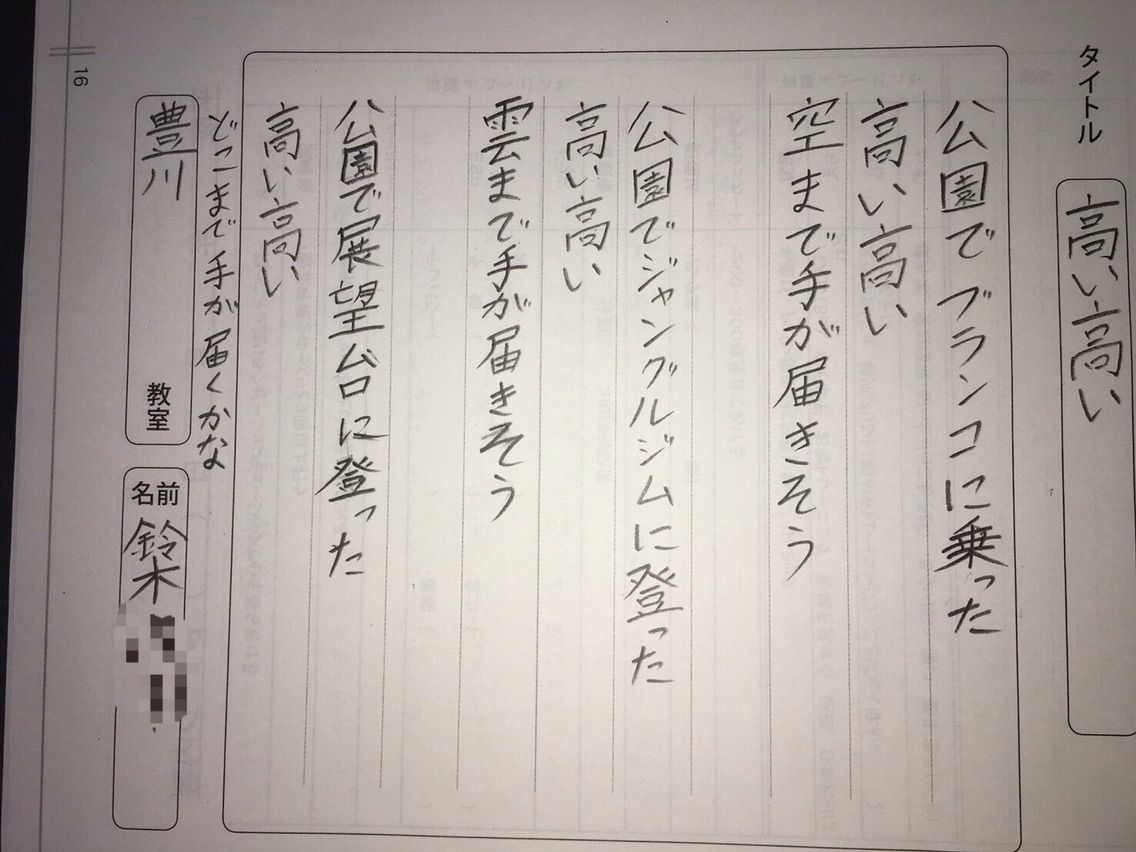 タイトル
高い高い
公園でブランコに乗った
高い高い
空まで手が届きそう
公園でジャングルジムに登った
高い高い
雲まで手が届きそう
公園で展望台に登った
高い高い
どこまで手が届くかな
豊川 教室
名前 鈴木
16